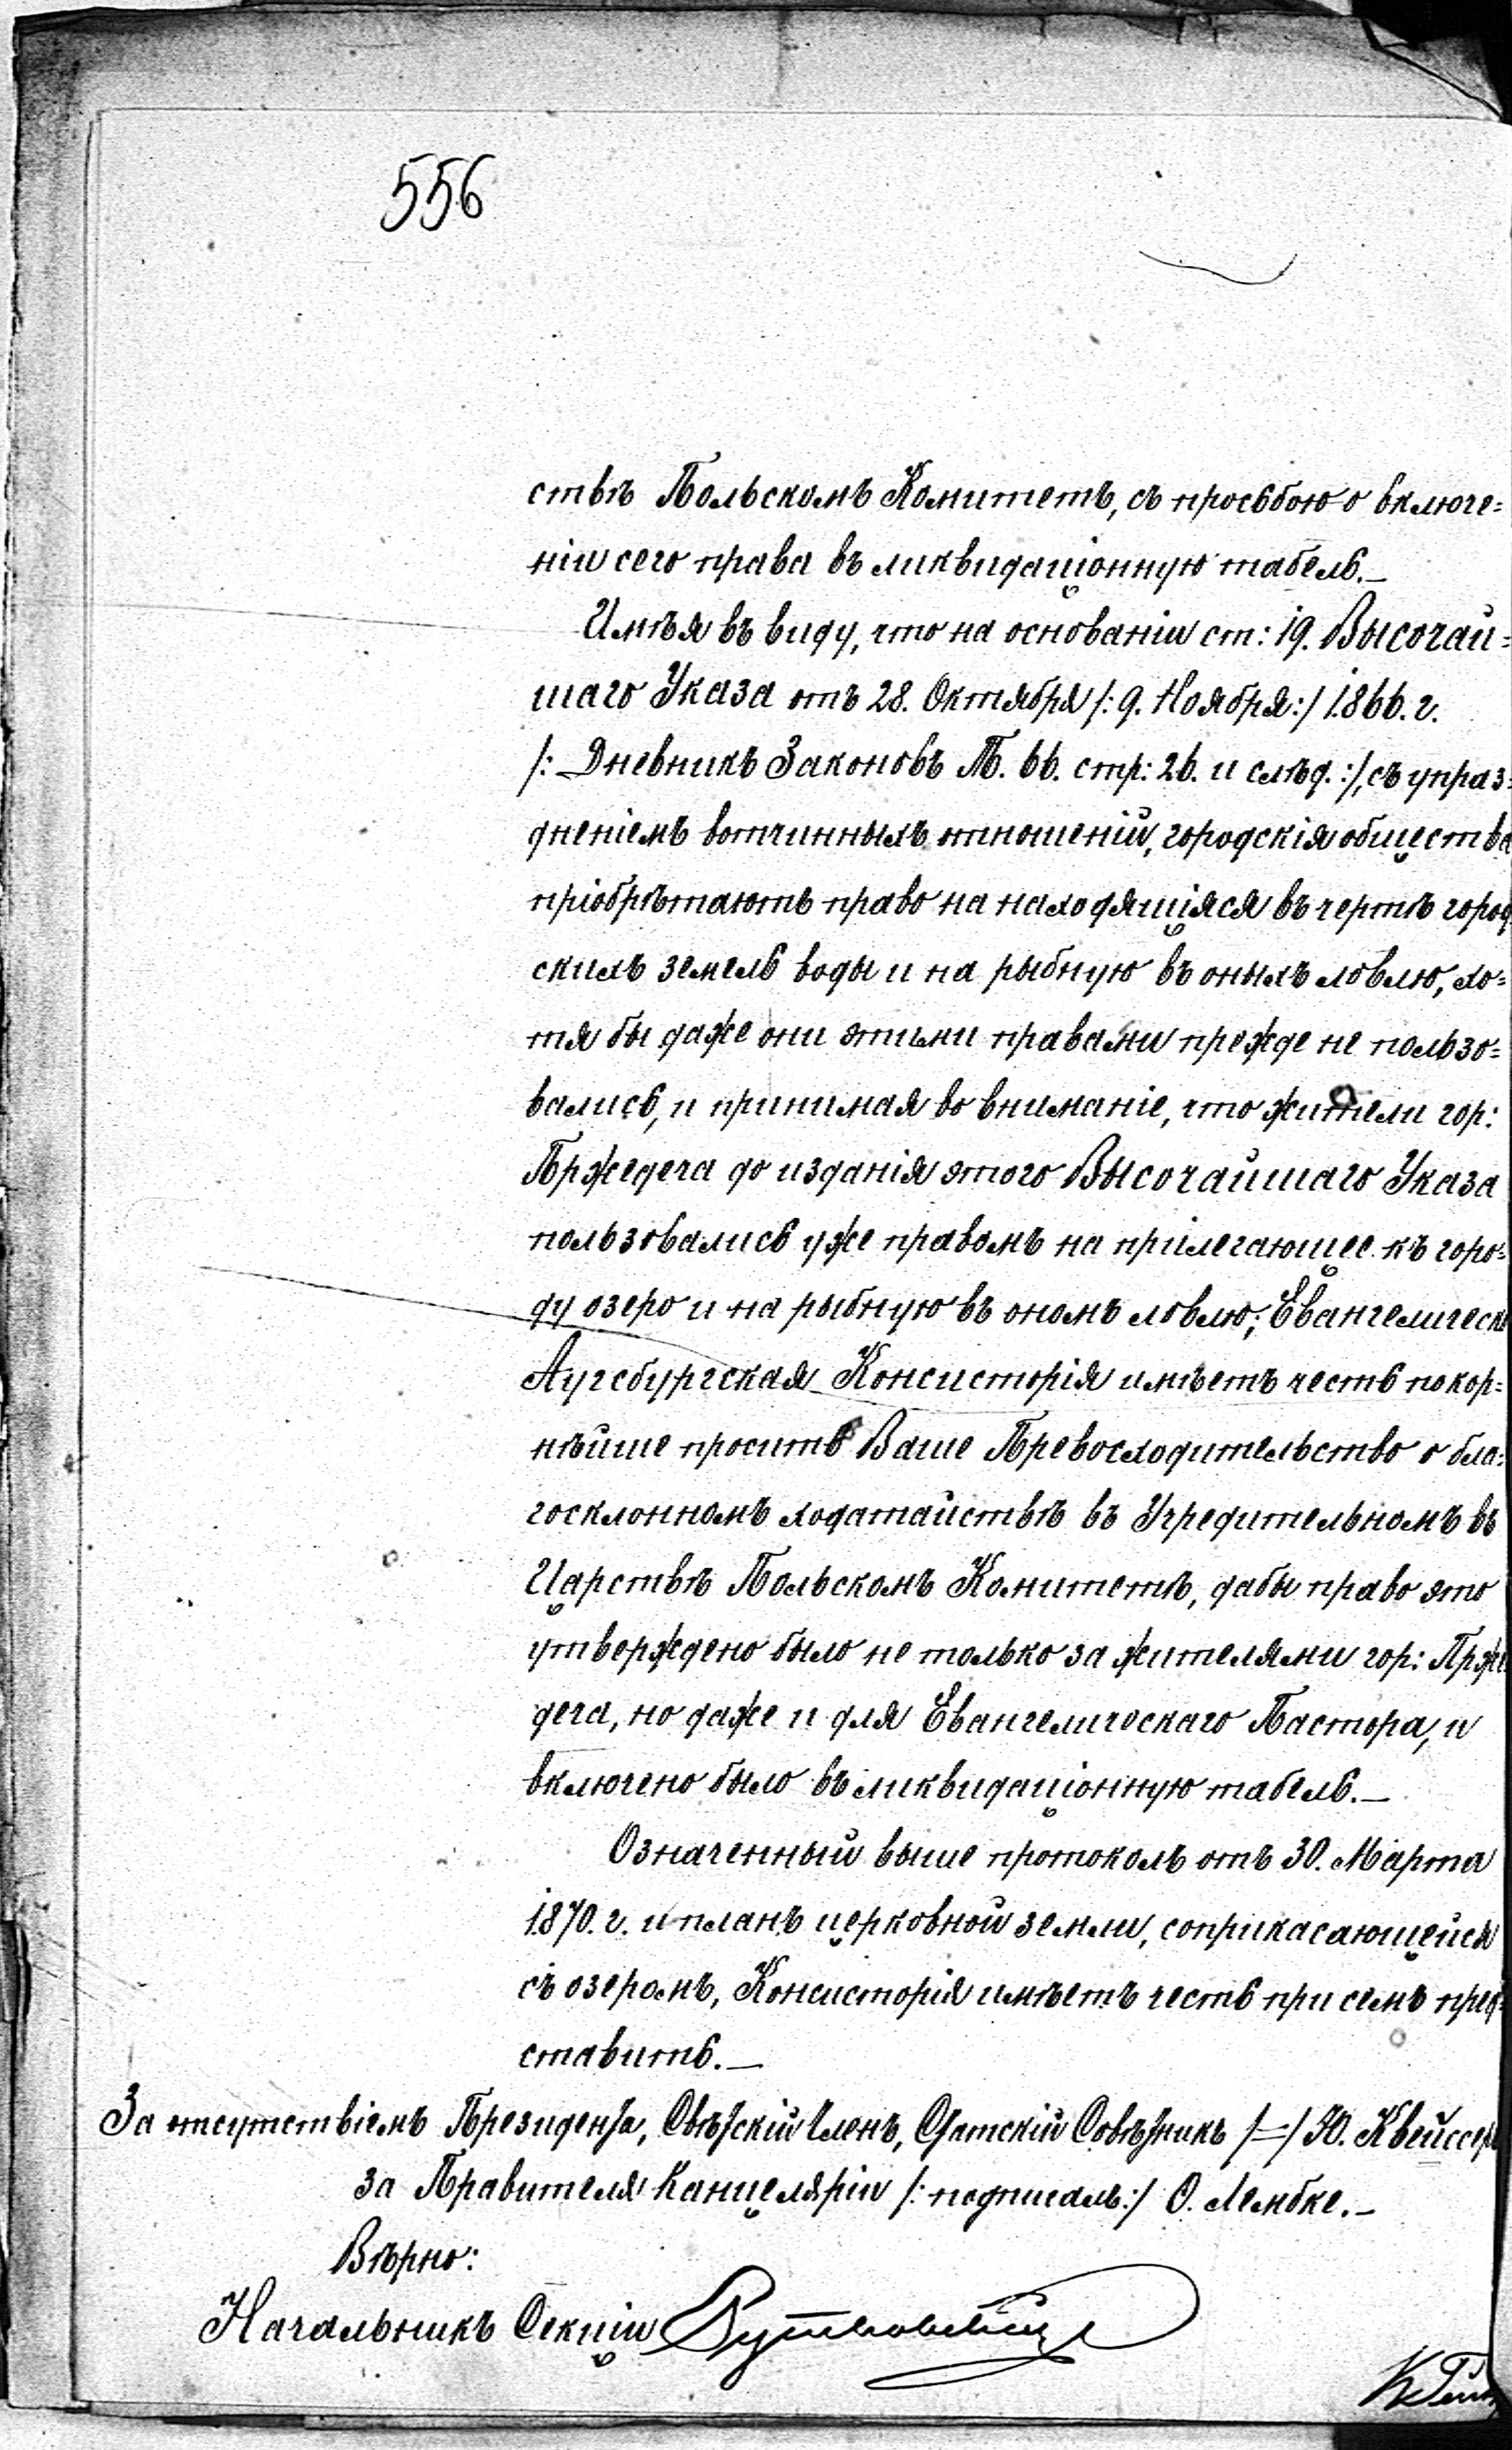 556
ствѣ Польскомъ Комитетъ, съ просьбою о включе=
ніи сего права въ ликвидаціонную табель.—
Имѣя въ виду, что на основаніи ст: 19. Высочай=
шаго Указа отъ 28. Октября /: 9. Ноября :/ 1866. г.
/: Дневникъ Законовъ Т. 66. стр: 26. и слѣд. :/, съ упраз=
дненіемъ вотчинныхъ отношеній, городскія общества
пріобрѣтаютъ право на находящіяся въ чертѣ город
скихъ земель воды и на рыбную въ оныхъ ловлю, хо=
тя бы даже они этими правами прежде не пользо=
вались, и принимая во вниманіе, что жители гор:
Пржедеча до изданія этого Высочайшаго Указа
пользовались уже правомъ на прилегающее къ горо=
ду озеро и на рыбную въ ономъ ловлю; Евангелическо
Аугсбургская Консисторія имѣетъ честь покор=
нѣйше просить Ваше Превосходительство о бла=
госклонномъ ходатайствѣ въ Учредительномъ въ
Царствѣ Польскомъ Комитетѣ, дабы право это
утверждено было не только за жителями гор: Прже
деча, но даже и для Евангелическаго Пастора, и
включено было въ ликвидаціонную табель.—
Означенный выше протоколъ отъ 30. Марта
1870. г. и планъ церковной земли, соприкасающейся
съ озеромъ, Консисторія имѣетъ честь при семъ пред=
ставить.—
За отсутствіемъ Президента, Свѣтскій Членъ, Статскій Совѣтникъ /—/ Ю. Квейссеръ
за Правителя Канцеляріи /: подписалъ :/ О. Лембке.—
Вѣрно:
Начальникъ Секціи